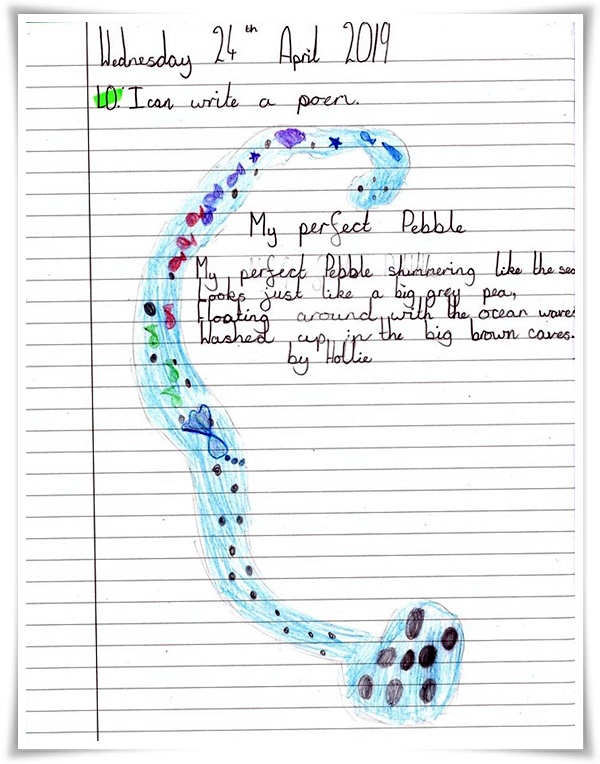 Wednesday 24th April 2019
LO: I can write a poem.
My perfect Pebble
My perfect Pebble shimmering like the sea
Looks just like a big grey pea,
Floating around with the ocean waves
Washed up in the big brown caves.
by Hollie